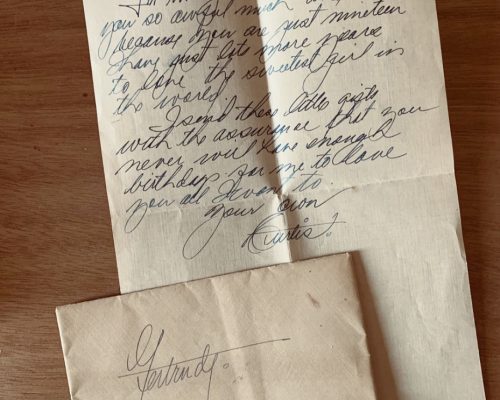 you so awful much
because you are just nineteen
I have just lots more years
to love the sweetest girl in
the world.
I send these little gifts
with the assurance that you
never will have enough
birthdays for me to love
you all I want to.
Your own
Curtis.
Gertrude.